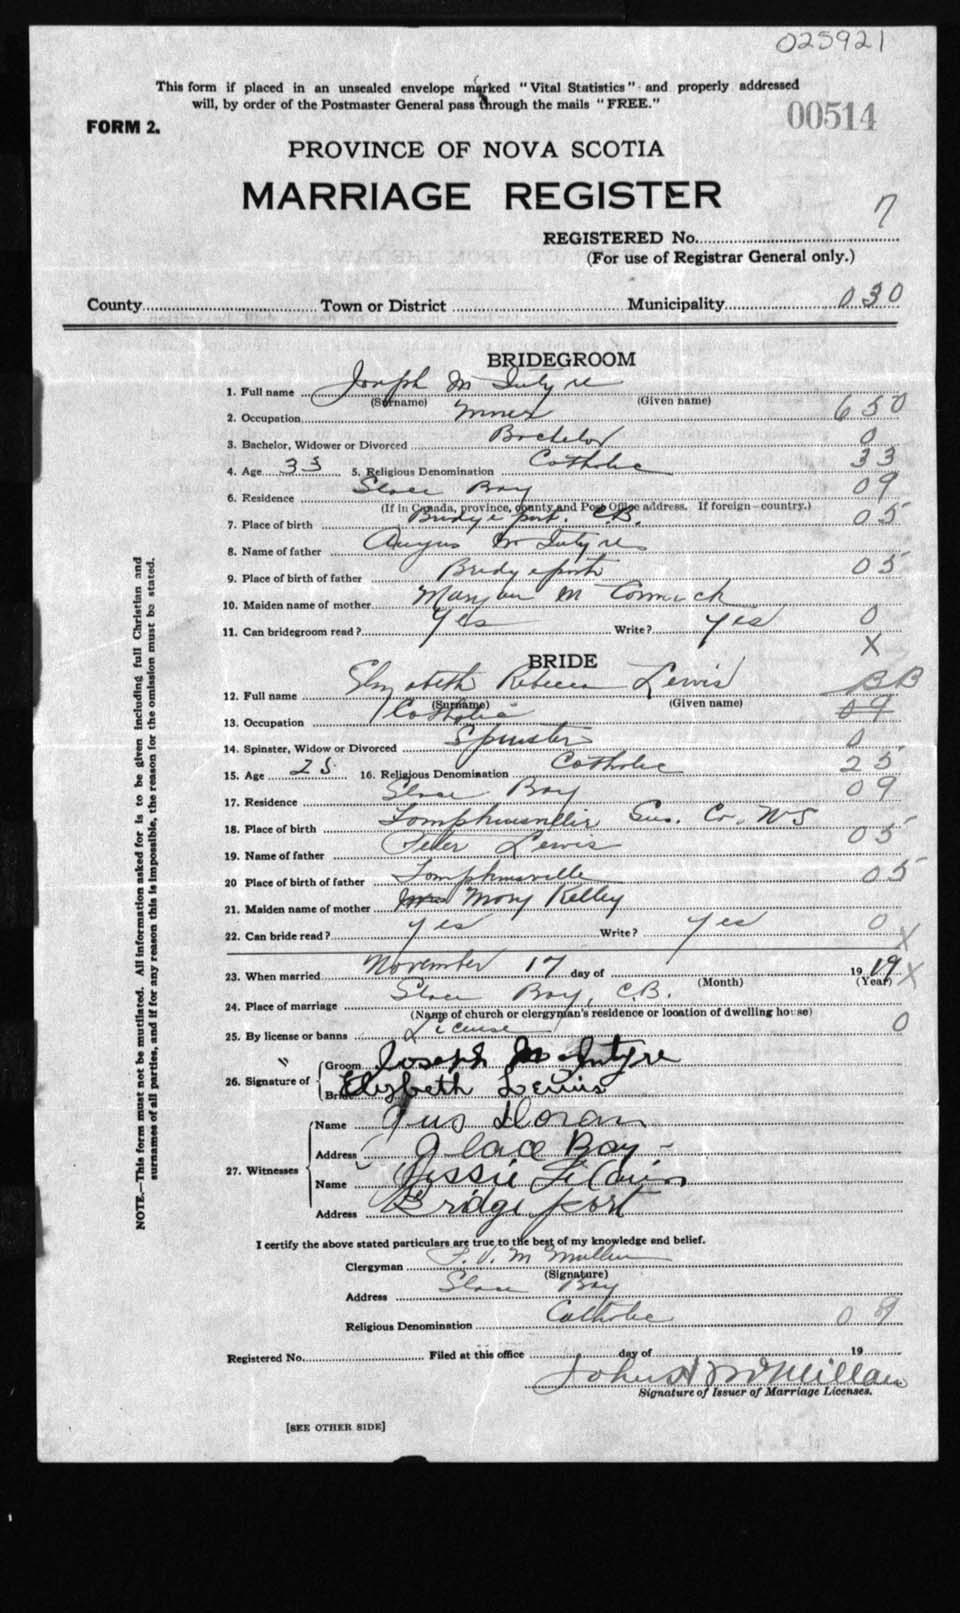 025921
This form if placed in an unsealed envelope marked "Vital Statistics" and properly addressed
will, by order of the Postmaster General pass through the mails "FREE."
00514
FORM 2.
PROVINCE OF NOVA SCOTIA
MARRIAGE REGISTER
7
REGISTERED No.
(For use of Registrar General only.)
County Town or District Municipality 030
BRIDEGROOM
1. Full name Joseph McIntyre
(Surname) (Given name)
2. Occupation Miner 650
3. Bachelor, Widower or Divorced Bachelor 0
4. Age 33 5. Religious Denomination Catholic 33
6. Residence Glace Bay 09
(If in Canada, province, county and Post Office address. If foreign—country.)
7. Place of birth Bridgeport. C.B. 05
8. Name of father Angus McIntyre
9. Place of birth of father Bridgeport 05
10. Maiden name of mother McCormack
11. Can bridegroom read? Yes Write? Yes 0
X
BRIDE
12. Full name Elizabeth Rebecca Lewis BB
(Surname) (Given name)
13. Occupation Catholic 09
14. Spinster, Widow or Divorced Spinster 0
15. Age 25 16. Religious Denomination Catholic 25
17. Residence Glace Bay 09
18. Place of birth Tompkinsville Guys. Co. N S
19. Name of father Peter Lewis 05
20 Place of birth of father Tompkinsville 05
21. Maiden name of mother Mary Kelley
22. Can bride read? Yes Write? Yes 0 X
23. When married November 17 day of 1919 X
(Month) (Year)
24. Place of marriage Glace Bay, C.B.
(Name of church or clergyman's residence or location of dwelling house)
25. By license or banns License 0
26. Signature of Groom Joseph McIntyre
Bride Elizbeth Lewis
27. Witnesses
Name Gus Doran
Address Glace Bay
Name Jessie
Address Bridgeport
I certify the above stated particulars are true to the best of my knowledge and belief.
Clergyman
(Signature)
Address Glace Bay
Religious Denomination Catholic 09
Registered No. Filed at this office day of 19
John A McMillan
Signature of Issuer of Marriage Licenses.
[SEE OTHER SIDE]
NOTE.—This form must not be mutilated. All information asked for is to be given including full Christian and
surnames of all parties, and if for any reason this is impossible, the reason for the omission must be stated.